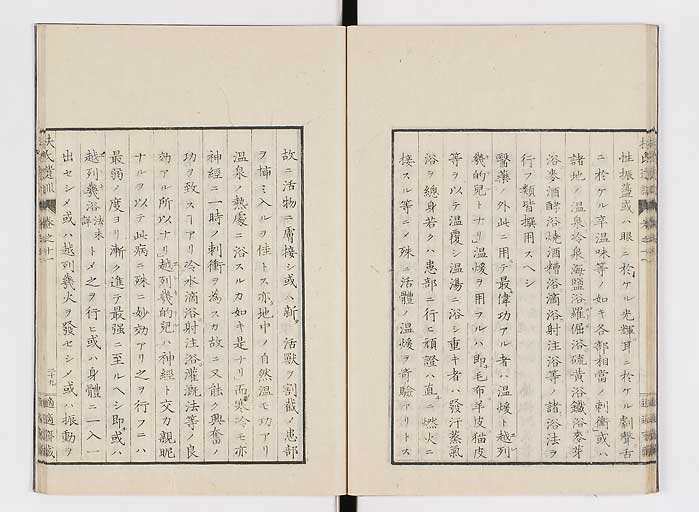 性振盪或ハ眼ニ於ケル光輝耳ニ於ケル劇聲舌
ニ於ケル辛温味等ノ如キ各部相當ノ刺衝或ハ
諸地ノ温泉冷泉海鹽浴羅倔浴硫黄浴鐵浴麥芽
浴麥酒酵浴焼酒糟浴滴浴射注浴等ノ諸浴法ヲ
行フ類皆撰用スヘシ
醫藥ノ外此ニ用テ最偉功アル者ハ温煖ト越列
幾的兒トナリ温煖ヲ用フルハ即毛布羊皮猫皮
等ヲ以テ温覆シ温湯ニ浴シ重キ者ハ發汗蒸氣
浴ヲ總身若クハ患部ニ行ヒ頑證ハ直ニ燃火ニ
接スル等ニメ殊ニ活體ノ温煖ヲ奇驗アリトス
故ニ活物ニ膚接シ或ハ新ニ活獣ヲ割截ノ患部
ヲ挿ミ入ルヲ佳トス亦地中ノ自然温モ功アリ
温泉ノ熱處ニ浴スルカ如キ是ナリ而寒冷モ亦
神經ニ一時ノ刺衝ヲ為スカ故ニ又能ク興奮ノ
功ヲ致スヿアリ冷水滴浴射注浴灌漑法等ノ良
効アル所以ナリ越列幾的兒ハ神經ト交力親昵
ナルヲ以テ此病ニ殊ニ妙効アリ之ヲ行フニハ
最弱ノ度ヨリ漸ク進テ最强ニ至ルヘシ即或ハ
越列幾浴法未詳トメ之ヲ行ヒ或ハ身體ニ一入一
出セシメ或ハ越列幾火ヲ發セシメ或ハ振動ヲ
扶氏遺訓
卷之十一
二十九
適適齋藏